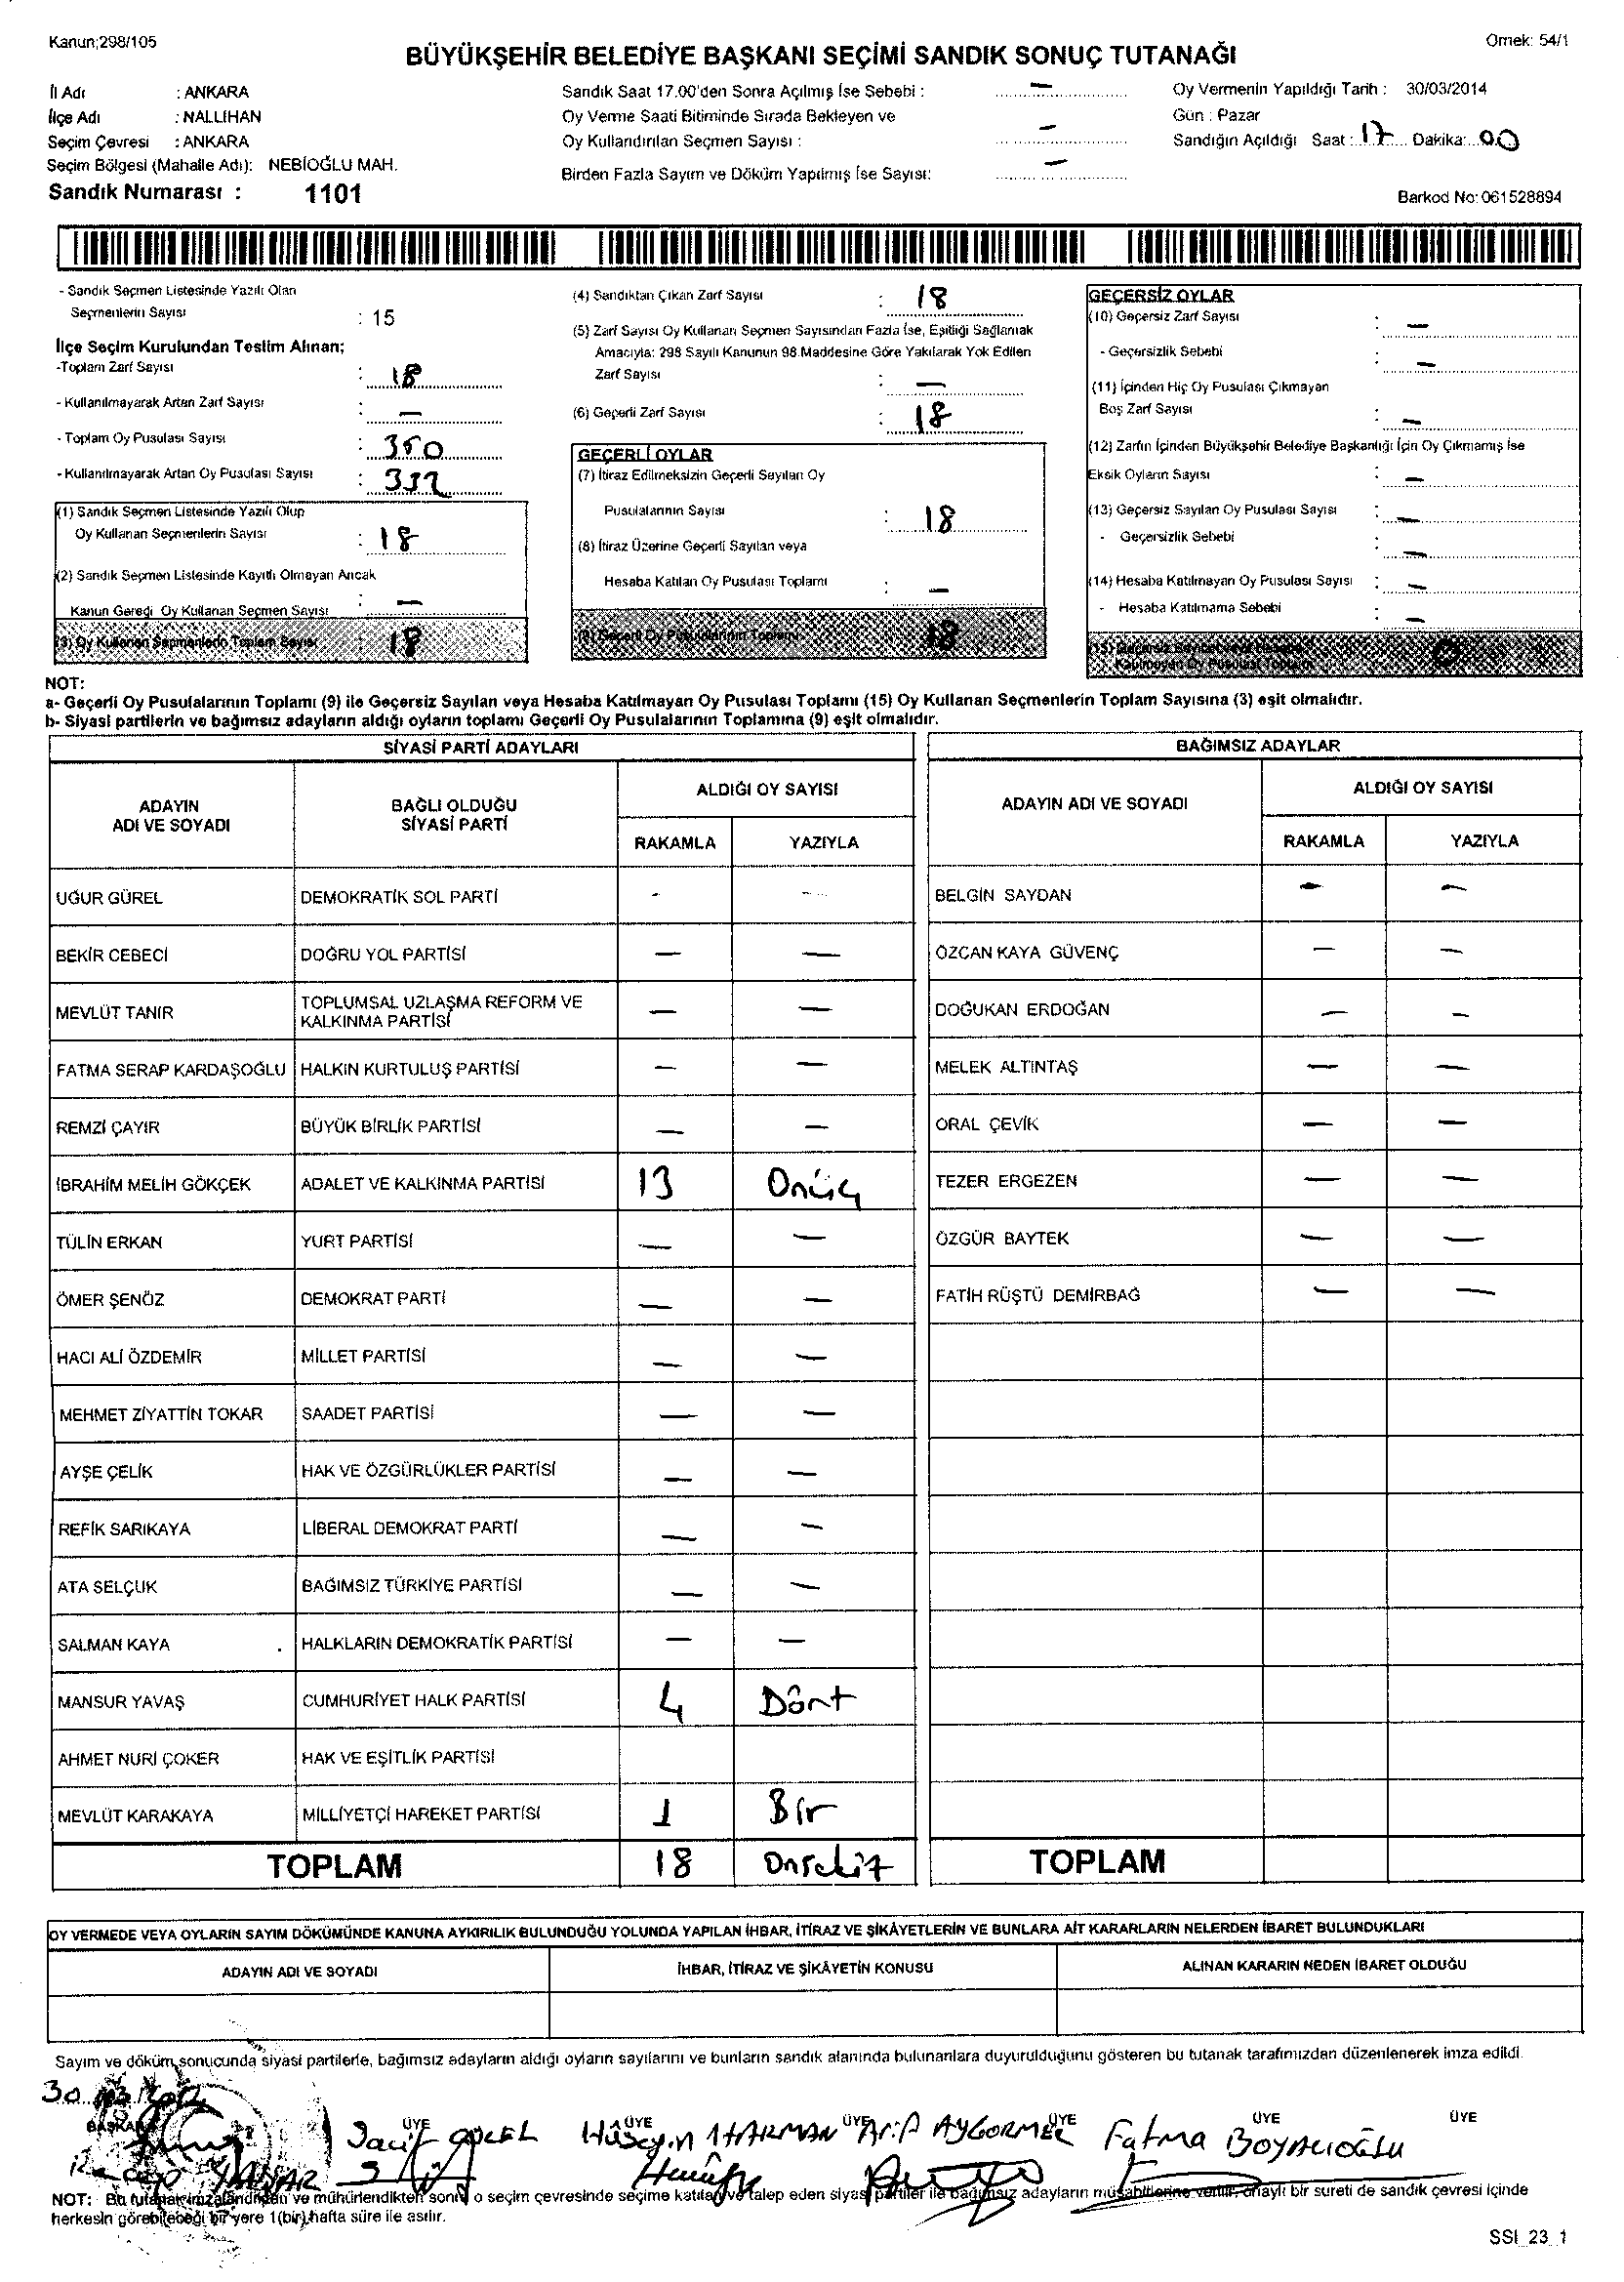 Kanun;298/105
Örnek: 54/1
BÜYÜKŞEHİR BELEDİYE BAŞKANI SEÇİMİ SANDIK SONUÇ TUTANAĞI
İl Adı : ANKARA
İlçe Adı : NALLIHAN
Seçim Çevresi : ANKARA
Seçim Bölgesi (Mahalle Adı): NEBİOĞLU MAH.
Sandık Numarası : 1101
Sandık Saat 17.00'den Sonra Açılmış İse Sebebi : —
Oy Verme Saati Bitiminde Sırada Bekleyen ve
Oy Kullandırılan Seçmen Sayısı : —
Birden Fazla Sayım ve Döküm Yapılmış İse Sayısı: —
Oy Vermenin Yapıldığı Tarih : 30/03/2014
Gün : Pazar
Sandığın Açıldığı Saat : 17 Dakika: 00
Barkod No: 061528894
- Sandık Seçmen Listesinde Yazılı Olan
Seçmenlerin Sayısı : 15
İlçe Seçim Kurulundan Teslim Alınan;
-Toplam Zarf Sayısı : 18
- Kullanılmayarak Artan Zarf Sayısı : —
- Toplam Oy Pusulası Sayısı : 350
- Kullanılmayarak Artan Oy Pusulası Sayısı : 332
(1) Sandık Seçmen Listesinde Yazılı Olup
Oy Kullanan Seçmenlerin Sayısı : 18
(2) Sandık Seçmen Listesinde Kayıtlı Olmayan Ancak
Kanun Gereği Oy Kullanan Seçmen Sayısı : —
(3) Oy Kullanan Seçmenlerin Toplam Sayısı : 18
(4) Sandıktan Çıkan Zarf Sayısı : 18
(5) Zarf Sayısı Oy Kullanan Seçmen Sayısından Fazla İse, Eşitliği Sağlamak
Amacıyla: 298 Sayılı Kanunun 98.Maddesine Göre Yakılarak Yok Edilen
Zarf Sayısı : —
(6) Geçerli Zarf Sayısı : 18
GEÇERLİ OYLAR
(7) İtiraz Edilmeksizin Geçerli Sayılan Oy
Pusulalarının Sayısı : 18
(8) İtiraz Üzerine Geçerli Sayılan veya
Hesaba Katılan Oy Pusulası Toplamı : —
(9) Geçerli Oy Pusulalarının Toplamı 18
GEÇERSİZ OYLAR
(10) Geçersiz Zarf Sayısı : —
- Geçersizlik Sebebi : —
(11) İçinden Hiç Oy Pusulası Çıkmayan
Boş Zarf Sayısı : —
(12) Zarfın İçinden Büyükşehir Belediye Başkanlığı İçin Oy Çıkmamış İse
Eksik Oyların Sayısı : —
(13) Geçersiz Sayılan Oy Pusulası Sayısı : —
- Geçersizlik Sebebi : —
(14) Hesaba Katılmayan Oy Pusulası Sayısı : —
- Hesaba Katılmama Sebebi : —
(15) Geçersiz Sayılan veya Hesaba
Katılmayan Oy Pusulası Toplamı 0
NOT:
a- Geçerli Oy Pusulalarının Toplamı (9) ile Geçersiz Sayılan veya Hesaba Katılmayan Oy Pusulası Toplamı (15) Oy Kullanan Seçmenlerin Toplam Sayısına (3) eşit olmalıdır.
b- Siyasi partilerin ve bağımsız adayların aldığı oyların toplamı Geçerli Oy Pusulalarının Toplamına (9) eşit olmalıdır.
SİYASİ PARTİ ADAYLARI
ADAYIN ADI VE SOYADI BAĞLI OLDUĞU SİYASİ PARTİ ALDIĞI OY SAYISI
RAKAMLA YAZIYLA
UĞUR GÜREL DEMOKRATİK SOL PARTİ - -
BEKİR CEBECİ DOĞRU YOL PARTİSİ — —
MEVLÜT TANIR TOPLUMSAL UZLAŞMA REFORM VE KALKINMA PARTİSİ — —
FATMA SERAP KARDAŞOĞLU HALKIN KURTULUŞ PARTİSİ — —
REMZİ ÇAYIR BÜYÜK BİRLİK PARTİSİ — —
İBRAHİM MELİH GÖKÇEK ADALET VE KALKINMA PARTİSİ 13 Onüç
TÜLİN ERKAN YURT PARTİSİ — —
ÖMER ŞENÖZ DEMOKRAT PARTİ — —
HACI ALİ ÖZDEMİR MİLLET PARTİSİ — —
MEHMET ZİYATTİN TOKAR SAADET PARTİSİ — —
AYŞE ÇELİK HAK VE ÖZGÜRLÜKLER PARTİSİ — —
REFİK SARIKAYA LİBERAL DEMOKRAT PARTİ — —
ATA SELÇUK BAĞIMSIZ TÜRKİYE PARTİSİ — —
SALMAN KAYA HALKLARIN DEMOKRATİK PARTİSİ — —
MANSUR YAVAŞ CUMHURİYET HALK PARTİSİ 4 Dört
AHMET NURİ ÇOKER HAK VE EŞİTLİK PARTİSİ
MEVLÜT KARAKAYA MİLLİYETÇİ HAREKET PARTİSİ 1 Bir
TOPLAM 18 Onsekiz
BAĞIMSIZ ADAYLAR
ADAYIN ADI VE SOYADI ALDIĞI OY SAYISI
RAKAMLA YAZIYLA
BELGİN SAYDAN — —
ÖZCAN KAYA GÜVENÇ — —
DOĞUKAN ERDOĞAN — —
MELEK ALTINTAŞ — —
ORAL ÇEVİK — —
TEZER ERGEZEN — —
ÖZGÜR BAYTEK — —
FATİH RÜŞTÜ DEMİRBAĞ — —
TOPLAM
OY VERMEDE VEYA OYLARIN SAYIM DÖKÜMÜNDE KANUNA AYKIRILIK BULUNDUĞU YOLUNDA YAPILAN İHBAR, İTİRAZ VE ŞİKÂYETLERİN VE BUNLARA AİT KARARLARIN NELERDEN İBARET BULUNDUKLARI
ADAYIN ADI VE SOYADI İHBAR, İTİRAZ VE ŞİKÂYETİN KONUSU ALINAN KARARIN NEDEN İBARET OLDUĞU
Sayım ve döküm sonucunda siyasi partilerle, bağımsız adayların aldığı oyların sayılarını ve bunların sandık alanında bulunanlara duyurulduğunu gösteren bu tutanak tarafımızdan düzenlenerek imza edildi.
BAŞKAN ÜYE ÜYE ÜYE ÜYE ÜYE ÜYE
Hüseyin HARMAN Arif AYGÖRMEZ Fatma BOYACIOĞLU
NOT: Bu tutanak imzalandıktan ve mühürlendikten sonra o seçim çevresinde seçime katılan ve talep eden siyasi partiler ile bağımsız adayların müşahitlerine verilir, onaylı bir sureti de sandık çevresi içinde
herkesin görebileceği bir yere 1(bir) hafta süre ile asılır.
SSI_23_1